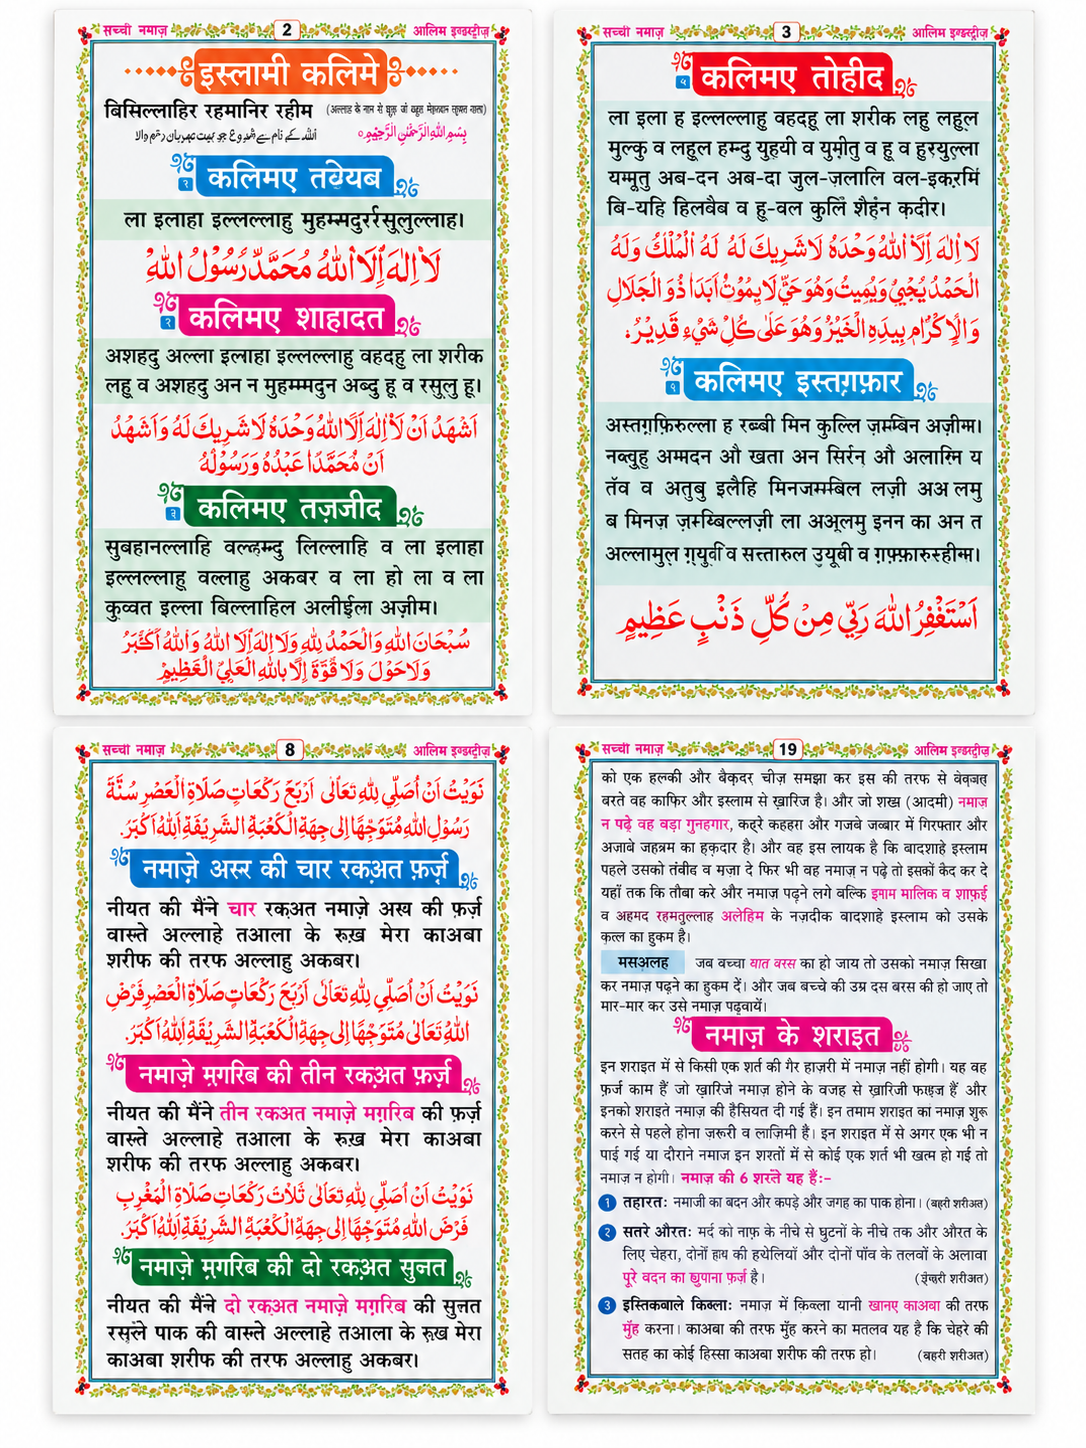 सच्ची नमाज़ 2 आलिम इण्डस्ट्रीज़
इस्लामी कलिमे
बिसिल्लाहिर रहमानिर रहीम (अल्लाह के नाम से शुरू जो बहुत मेहरबान
اللہ کے نام سے شروع جو بہت مہربان رحم والا بِسْمِ اللهِ الرَّحْمٰنِ الرَّحِيْمِ
कलिमए तय्यब
१
ला इलाहा इल्लल्लाहु मुहम्मदुर्रसुलुल्लाह।
لَا اِلٰهَ اِلَّا اللهُ مُحَمَّدٌ رَّسُوْلُ اللهِ
कलिमए शाहादत
२
अशहदु अल्ला इलाहा इल्लल्लाहु वहदहु ला शरीक
लहू व अशहदु अन न मुहम्मदुन अब्दु हू व रसुलु हू।
اَشْهَدُ اَنْ لَّا اِلٰهَ اِلَّا اللهُ وَحْدَهٗ لَا شَرِيْكَ لَهٗ وَ اَشْهَدُ
اَنَّ مُحَمَّدًا عَبْدُهٗ وَرَسُوْلُهٗ
कलिमए तज़जीद
सुबहानल्लाहि वल्हम्दु लिल्लाहि व ला इलाहा
इल्लल्लाहू वल्लाहु अकबर व ला हो ला व ला
कुव्वत इल्ला बिल्लाहिल अलीईला अज़ीम।
سُبْحَانَ اللهِ وَالْحَمْدُ لِلّٰهِ وَلَا اِلٰهَ اِلَّا اللهُ وَاللهُ اَكْبَرُ
وَلَا حَوْلَ وَلَا قُوَّةَ اِلَّا بِاللهِ الْعَلِيِّ الْعَظِيْمِ
सच्ची नमाज़ 3 आलिम इण्डस्ट्रीज़
कलिमए तोहीद
ला इला ह इल्लल्लाहु वहदहु ला शरीक लहु लहूल
मुल्कु व लहूल हम्दु युहयी व युमीतु व हू व हुरयुल्ला
यम्मूतु अब-दन अब-दा जुल-ज़लालि वल-इकरमिं
बि-यहि हिलवैब व हू-वल कुलिं शैहंन क़दीर।
لَا اِلٰهَ اِلَّا اللهُ وَحْدَهٗ لَا شَرِيْكَ لَهٗ لَهُ الْمُلْكُ وَلَهُ
الْحَمْدُ يُحْيِيْ وَيُمِيْتُ وَهُوَ حَيٌّ لَا يَمُوْتُ اَبَدًا ذُو الْجَلَالِ
وَالْاِكْرَامِ بِيَدِهِ الْخَيْرُ وَهُوَ عَلٰى كُلِّ شَيْءٍ قَدِيْرٌ
कलिमए इस्तग़फ़ार
अस्तग़फ़िरुल्ला ह रब्बी मिन कुल्लि ज़म्बिन अज़ीम।
नब्वुहु अम्मदन औ खता अन सिर्रन् औ अलानि य
तँव व अतुबु इलैहि मिनजम्बिल लज़ी अअ लमु
ब मिनज़ ज़म्यिबिल्लज़ी ला अअ्लमु इनन का अन त
अल्लामुल ग़्युवीं व सत्तारुल उ़यूबी व ग़फ़्फ़ारुरुहीम।
اَسْتَغْفِرُ اللهَ رَبِّيْ مِنْ كُلِّ ذَنْبٍ عَظِيْمٍ
सच्ची नमाज़ 8 आलिम इण्डस्ट्रीज़
نَوَيْتُ اَنْ اُصَلِّيَ لِلّٰهِ تَعَالٰى اَرْبَعَ رَكْعَاتِ صَلَاةِ الْعَصْرِ سُنَّةَ
رَسُوْلِ اللهِ مُتَوَجِّهًا اِلٰى جِهَةِ الْكَعْبَةِ الشَّرِيْفَةِ اَللهُ اَكْبَرُ.
नमाज़े अस्र की चार रकअ़त फ़र्ज़
नीयत की मैंने चार रकअ़त नमाज़े अस्र की फ़र्ज़
वास्ते अल्लाहे तआला के रूख़ मेरा काअबा
शरीफ की तरफ अल्लाहु अकबर।
نَوَيْتُ اَنْ اُصَلِّيَ لِلّٰهِ تَعَالٰى اَرْبَعَ رَكْعَاتِ صَلَاةِ الْعَصْرِ فَرْضَ
اللهِ تَعَالٰى مُتَوَجِّهًا اِلٰى جِهَةِ الْكَعْبَةِ الشَّرِيْفَةِ اَللهُ اَكْبَرُ.
नमाज़े मग़रिब की तीन रकअ़त फ़र्ज़
नीयत की मैंने तीन रकअत नमाज़े मग़रिब की फ़र्ज़
वास्ते अल्लाहे तआला के रूख़ मेरा काअबा
शरीफ की तरफ अल्लाहु अकबर।
نَوَيْتُ اَنْ اُصَلِّيَ لِلّٰهِ تَعَالٰى ثَلَاثَ رَكْعَاتِ صَلَاةِ الْمَغْرِبِ
فَرْضَ اللهِ مُتَوَجِّهًا اِلٰى جِهَةِ الْكَعْبَةِ الشَّرِيْفَةِ اَللهُ اَكْبَرُ.
नमाज़े मग़रिब की दो रकअ़त सुन्नत
नीयत की मैंने दो रकअ़त नमाज़े मग़रिब की सुन्नत
रसूले पाक की वास्ते अल्लाहे तआला के रूख़ मेरा
काअबा शरीफ की तरफ अल्लाहु अकबर।
सच्ची नमाज़ 19 आलिम इण्डस्ट्रीज़
को एक हलकी और बैक़दर चीज़ समझा कर इस की तरफ से
बरते वह काफिर और इस्लाम से ख़ारिज है। और जो शख्स (आदमी) नमाज़
न पढ़े वह वड़ा गुनहगार, कहरे कहहरा और गजबे जब्बार में गिरफ्तार और
अजावे जहन्नम का हक़दार है। और वह इस लायक है कि बादशाहे इस्लाम
पहले उसको तंवीह व मज़ा दे फिर भी वह नमाज़ न पढ़े तो इसकों कैद कर दे
यहाँ तक कि तौबा करे और नमाज़ पढ़ने लगे वल्कि इमाम मालिक व शाफ़ई
व अहमद रहमतुल्लाह अलेहिम के नज़दीक बादशाहे इस्लाम को उसके
क़त्ल का हुकम है।
मसअलह जब बच्चा सात वरस का हो जाय तो उसको नमाज़ सिखा
कर नमाज़ पढ़ने का हुकम दें। और जब बच्चे की उम्र दस बरस की हो जाए तो
मार-मार कर उसे नमाज़ पढ़वायें।
नमाज़ के शराइत
इन शराइत में से किसी एक शर्त की गैर हाज़री में नमाज़ नहीं होगी। यह वह
फ़र्ज काम हैं जो ख़ारिजे नमाज़ होने के वजह से ख़ारिजी फाइज़ हैं और
इनको शराइते नमाज़ की हैसियत दी गई हैं। इन तमाम शराइत का नमाज़ शुरू
करने से पहले होना ज़रूरी व लाज़िमी हैं। इन शराइत में से अगर एक भी न
पाई गई या दौराने नमाज इन शर्तो में से कोई एक शर्त भी खत्म हो गई तो
नमाज़ न होगी। नमाज़ की 6 शरते यह हैं:-
1 तहारत: नमाजी का बदन और कपड़े और जगह का पाक होना। (बहरी शरीअत)
2 सतरे औरत: मर्द को नाफ़ के नीचे से घुटनों के नीचे तक और औरत के
लिए चेहरा, दोनों हाथ की हथेलियों और दोनों पाँव के तलवों के अलावा
पूरे वदन का छुपाना फ़र्ज़ है। शरीअत)
3 इस्तिकबाले किब्ला: नमाज़ में किब्ला यानी खानए काअवा की तरफ
मुँह करना। काअबा की तरफ मुँह करने का मतलव यह है कि चेहरे की
सतह का कोई हिस्सा काअबा शरीफ की तरफ हो। (बहरी शरीअत)